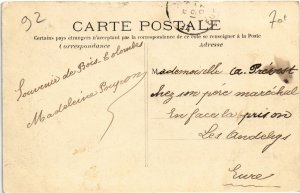 92
CARTE POSTALE
70f
Certains pays étrangers n'acceptent pas la correspondance de ce côté se renseigner à la Poste
Correspondance
Adresse
Souvenir de Bois Colombes
Madeleine
Mademoiselle A. Prévost
chez son père maréchal
En face la prison
Les Andelys
Eure